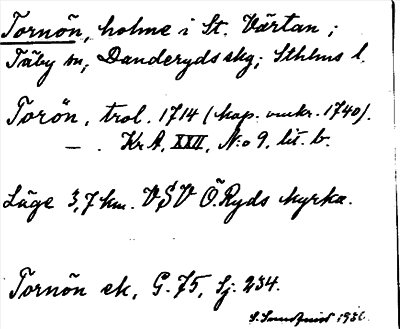 Tornön, holme i St. Värtan;
Täby sn; Danderyds skg; Sthlms l.
Torön, trol. 1714 (kop. omkr. 1740).
— . KrA, XXII, N:o 9, lit. b.
Läge 3,7 km. VSV Ö. Ryds kyrka.
Tornön ek, G. 75, Sj: 234.
S. Sundquist 1936.